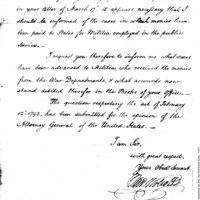 in your letter of March 17th it appears necessary that I
should be informed of the cases in which monies have been
paid to States for Militia employed in the public
service.
I request you therefore to inform me what sums
have been advanced to Militia, who received the monies
from the War Department, & what accounts now
stand debited therefor in the Books of your Office.
The question respecting the act of February
12th 1793, has been submitted for the opinion of the
Attorney General of the United States.
I am Sir,
with great respect,
Your Obedt Servant